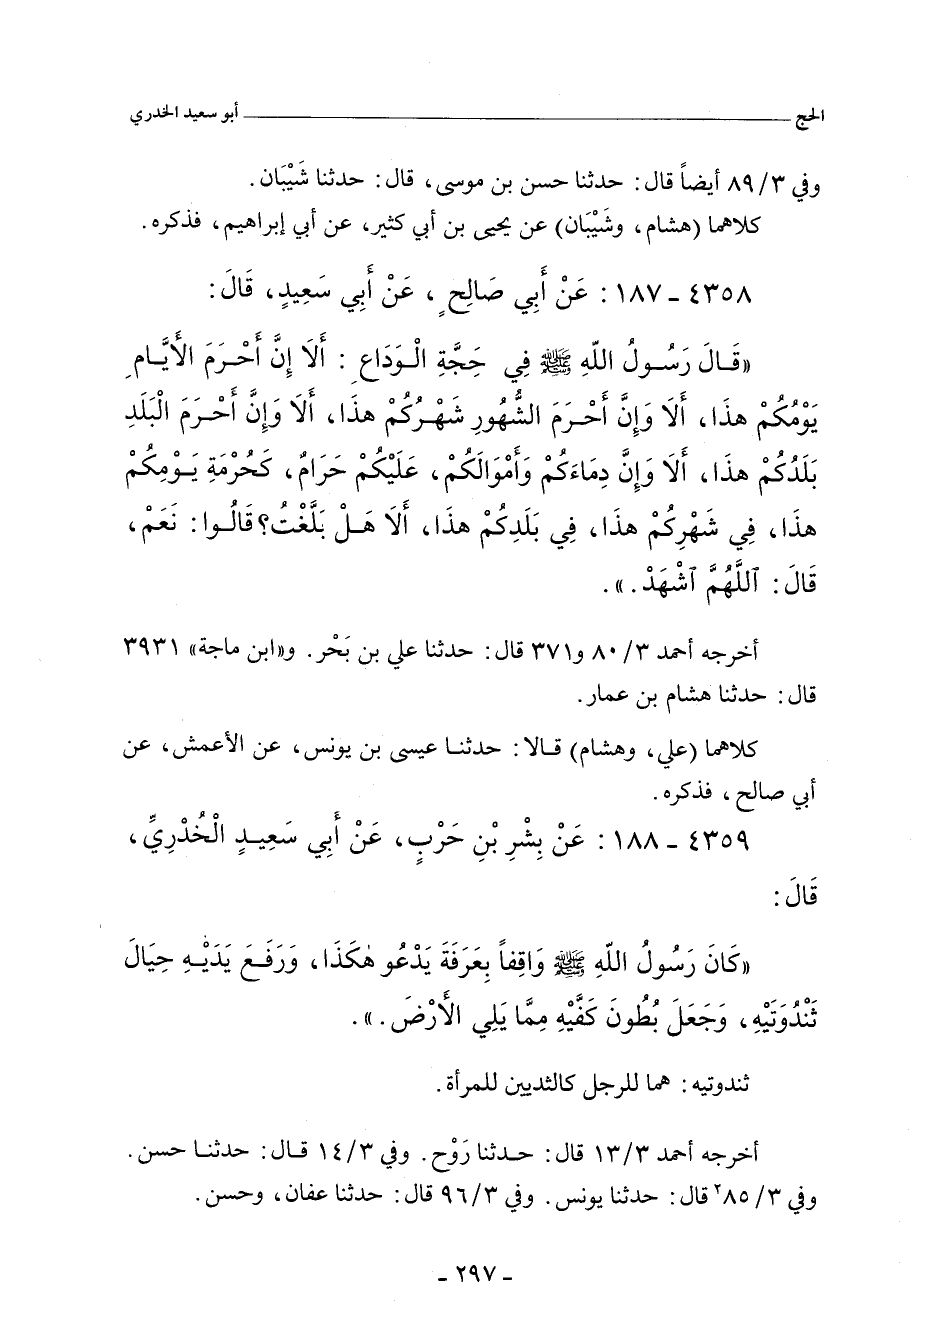 الحج ــــــــــــــــــــــــــــــــــــــــــــــــ أبو سعيد الخدري
وفي ٨٩/٣ أيضاً قال: حدثنا حسن بن موسى، قال: حدثنا شَيْبَان.
كلاهما (هشام، وشَيْبَان) عن يحيى بن أبي كثير، عن أبي إبراهيم، فذكره.
٤٣٥٨ - ١٨٧: عَنْ أَبِي صَالِحٍ، عَنْ أَبِي سَعِيدٍ، قَالَ:
«قَالَ رَسُولُ اللّهِ ﷺ فِي حَجَّةِ الْوَدَاعِ: أَلَا إِنَّ أَحْرَمَ الأَيَّامِ
يَوْمُكُمْ هذَا، أَلَا وَإِنَّ أَحْرَمَ الشُّهُورِ شَهْرُكُمْ هذَا، أَلَا وَإِنَّ أَحْرَمَ الْبَلَدِ
بَلَدُكُمْ هذَا، أَلَا وَإِنَّ دِمَاءَكُمْ وَأَمْوَالَكُمْ، عَلَيْكُمْ حَرَامٌ، كَحُرْمَةِ يَوْمِكُمْ
هذَا، فِي شَهْرِكُمْ هذَا، فِي بَلَدِكُمْ هذَا، أَلَا هَلْ بَلَّغْتُ؟ قَالُوا: نَعَمْ،
قَالَ: ٱللَّهُمَّ ٱشْهَدْ.».
أخرجه أحمد ٨٠/٣ و٣٧١ قال: حدثنا علي بن بَحْر. و«ابن ماجة» ٣٩٣١
قال: حدثنا هشام بن عمار.
كلاهما (علي، وهشام) قالا: حدثنا عيسى بن يونس، عن الأعمش، عن
أبي صالح، فذكره.
٤٣٥٩ - ١٨٨: عَنْ بِشْرِ بْنِ حَرْبٍ، عَنْ أَبِي سَعِيدٍ الْخُدْرِيِّ،
قَالَ:
«كَانَ رَسُولُ اللّهِ ﷺ وَاقِفاً بِعَرَفَةَ يَدْعُو هٰكَذَا، وَرَفَعَ يَدَيْهِ حِيَالَ
ثَنْدُوَتَيْهِ، وَجَعَلَ بُطُونَ كَفَّيْهِ مِمَّا يَلِي الأَرْضَ.».
ثندوتيه: هما للرجل كالثديين للمرأة.
أخرجه أحمد ١٣/٣ قال: حدثنا رَوْح. وفي ١٤/٣ قال: حدثنا حسن.
وفي ٨٥/٣² قال: حدثنا يونس. وفي ٩٦/٣ قال: حدثنا عفان، وحسن.
- ٢٩٧ -